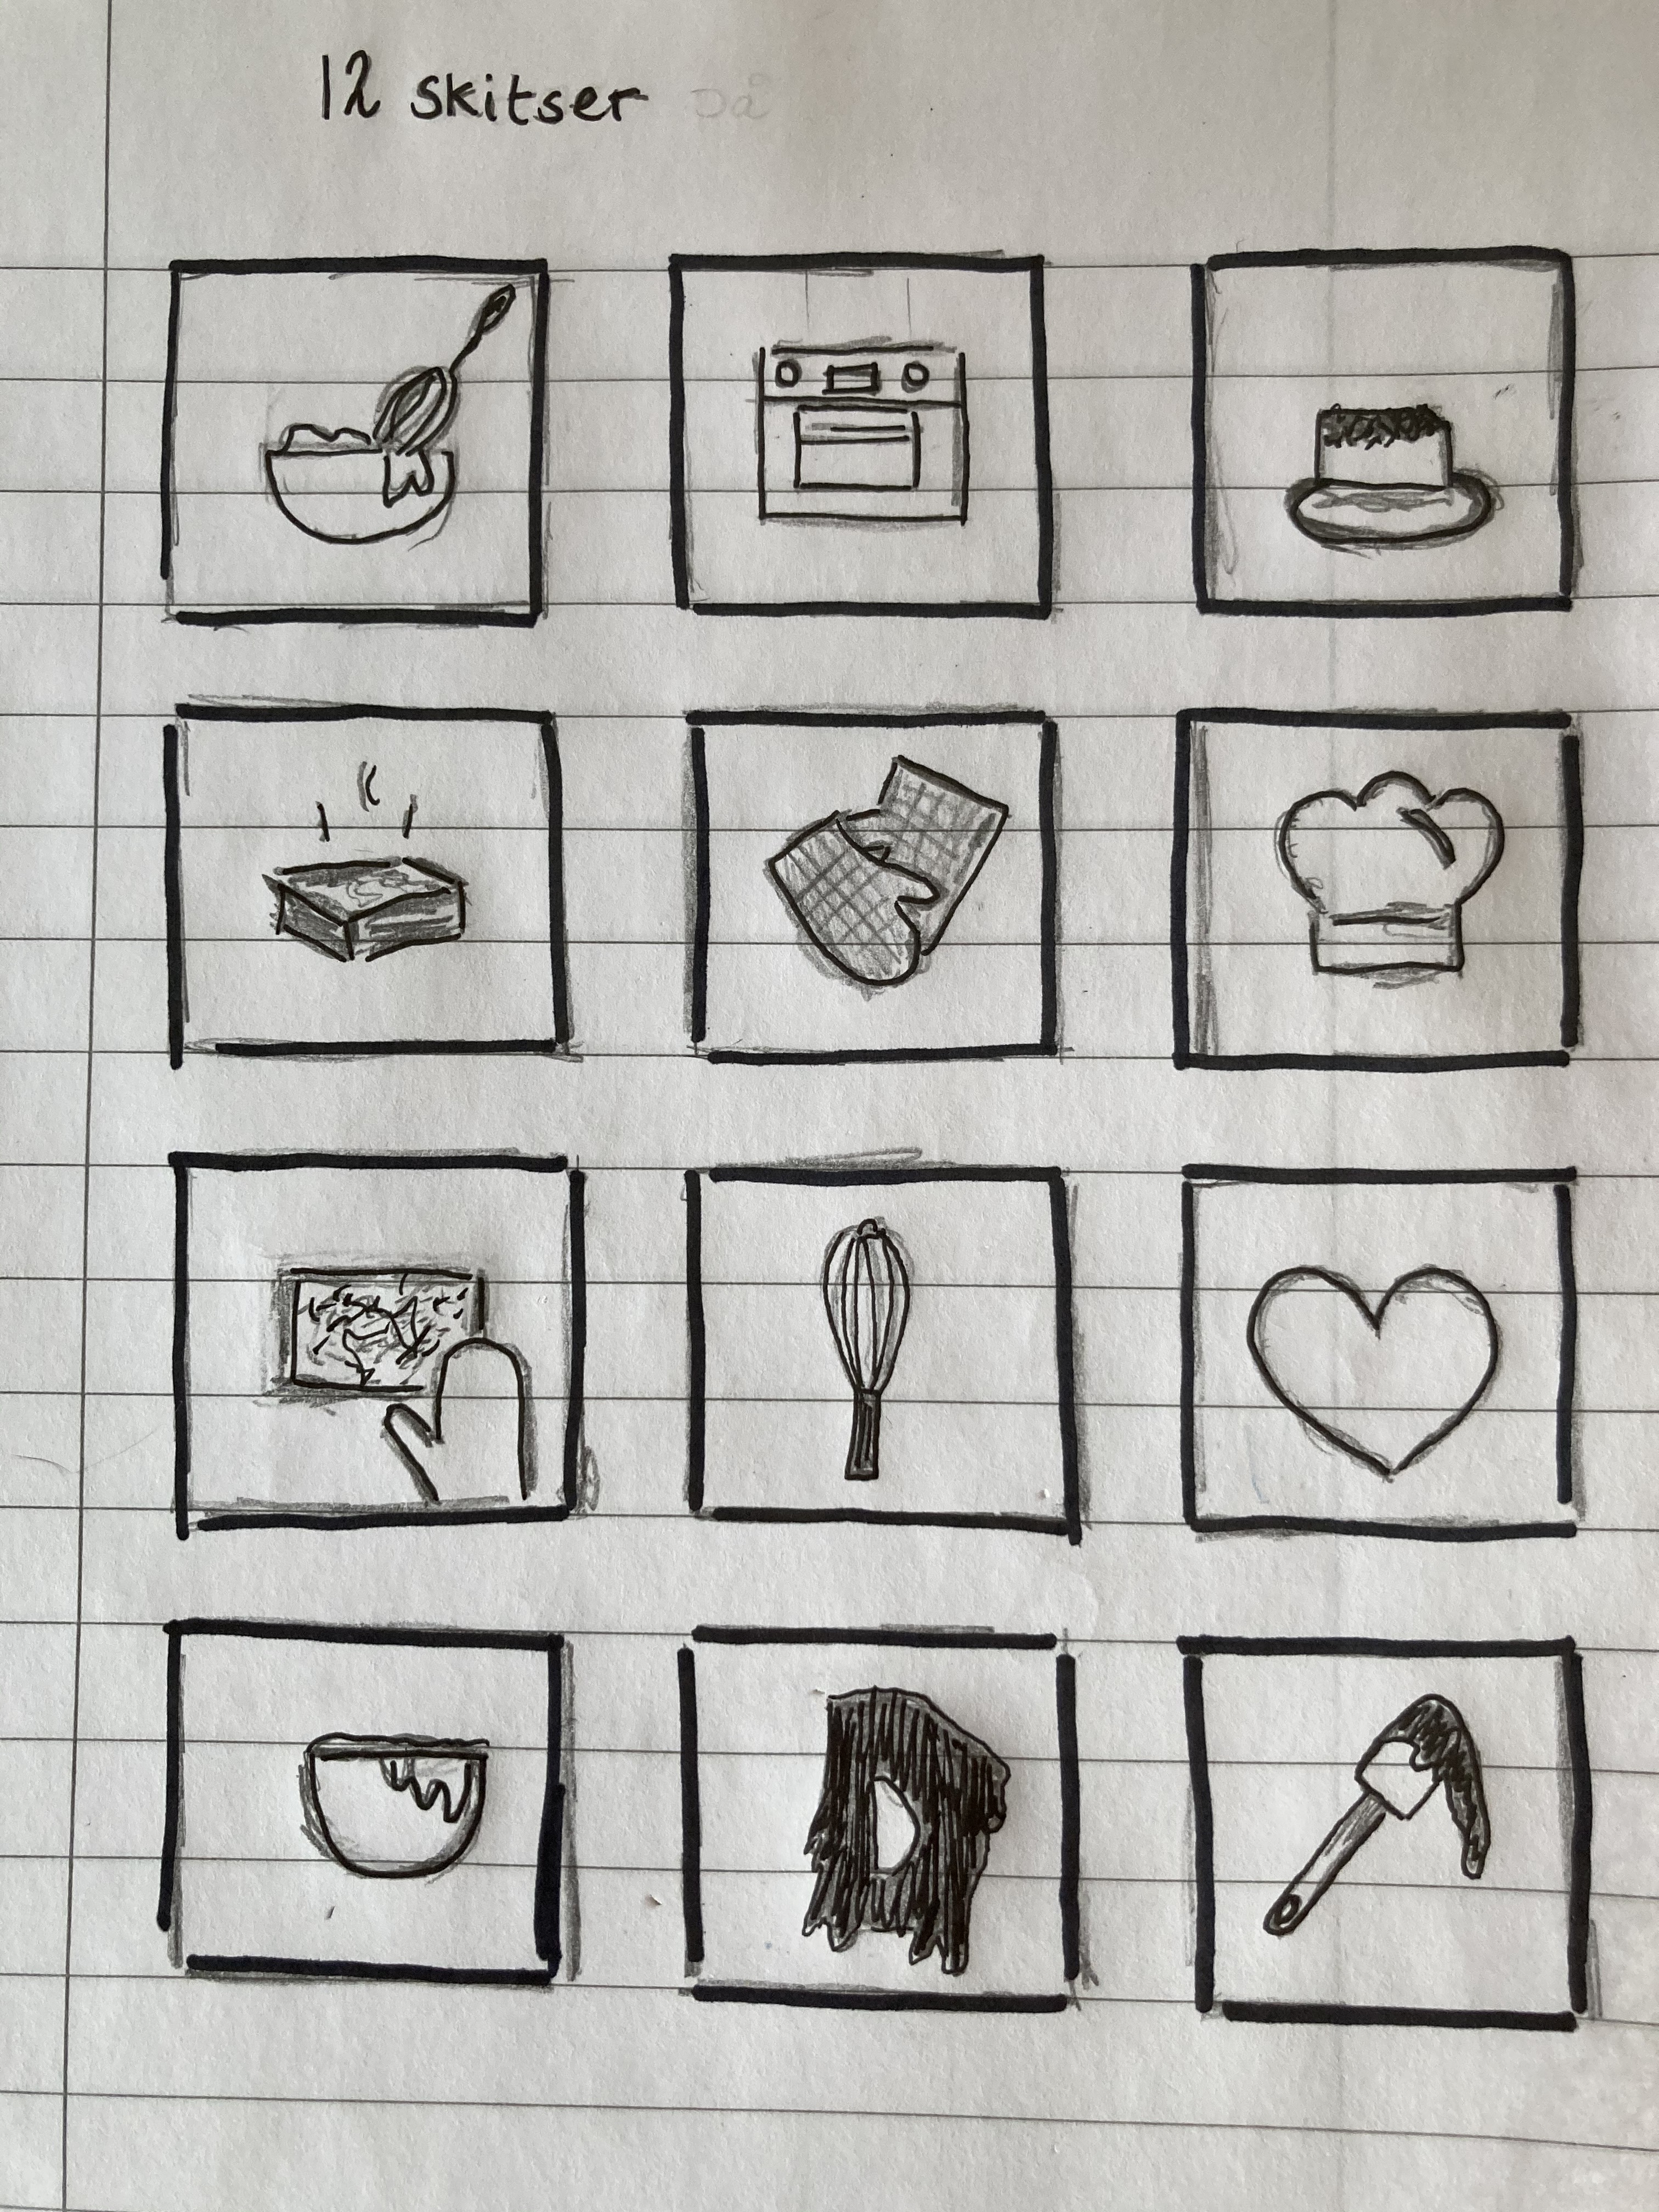 12 skitser på